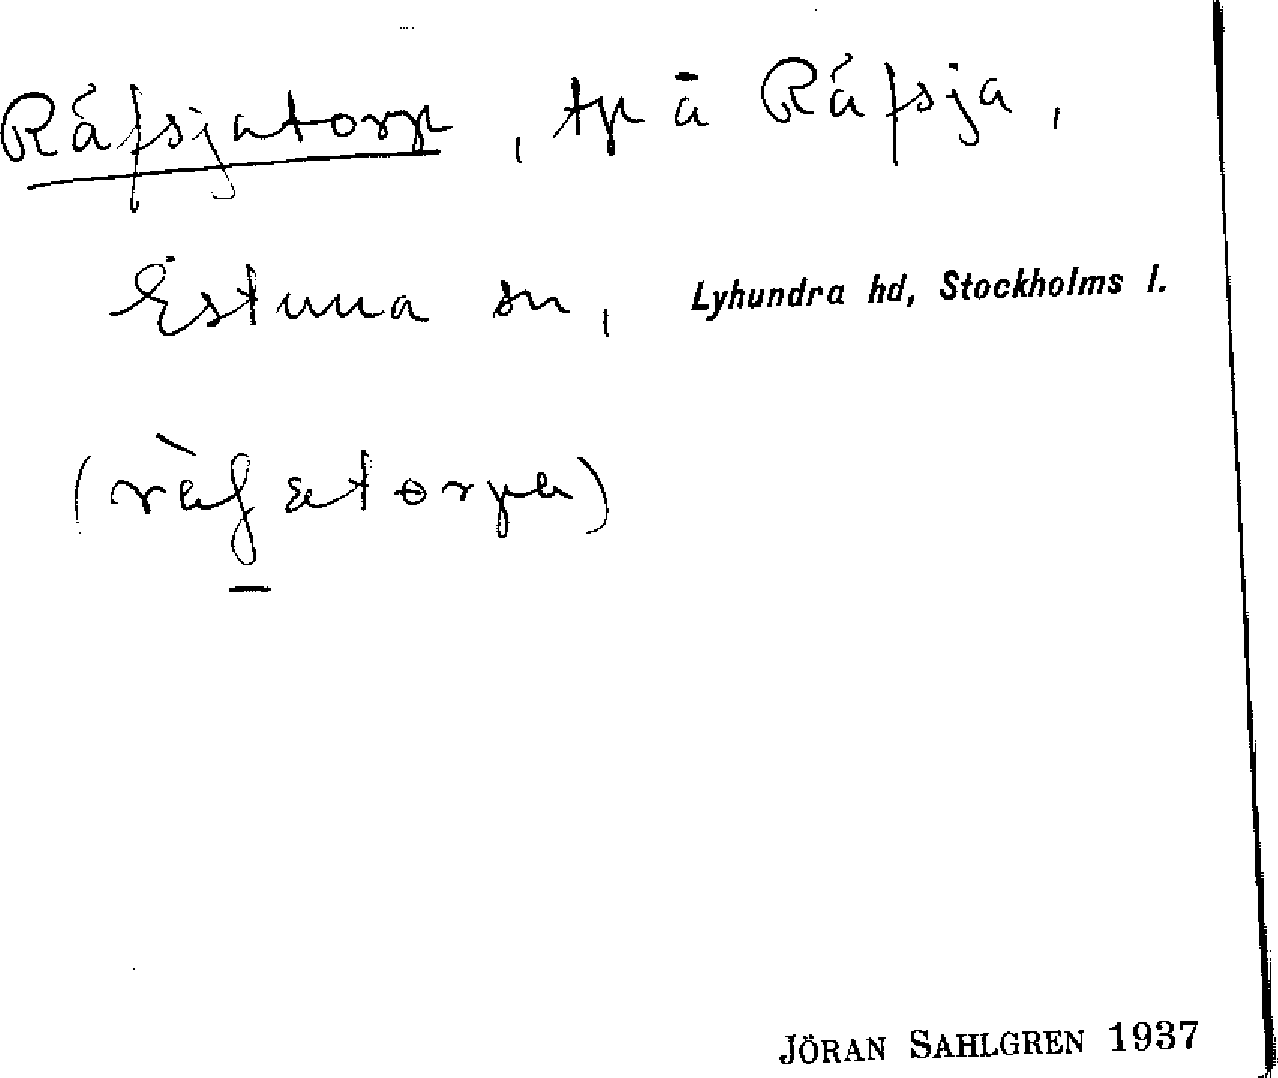 Ráfsjatorp, tp å Ráfsja,
Estuna sn, Lyhundra hd, Stockholms l.
JÖRAN SAHLGREN 1937